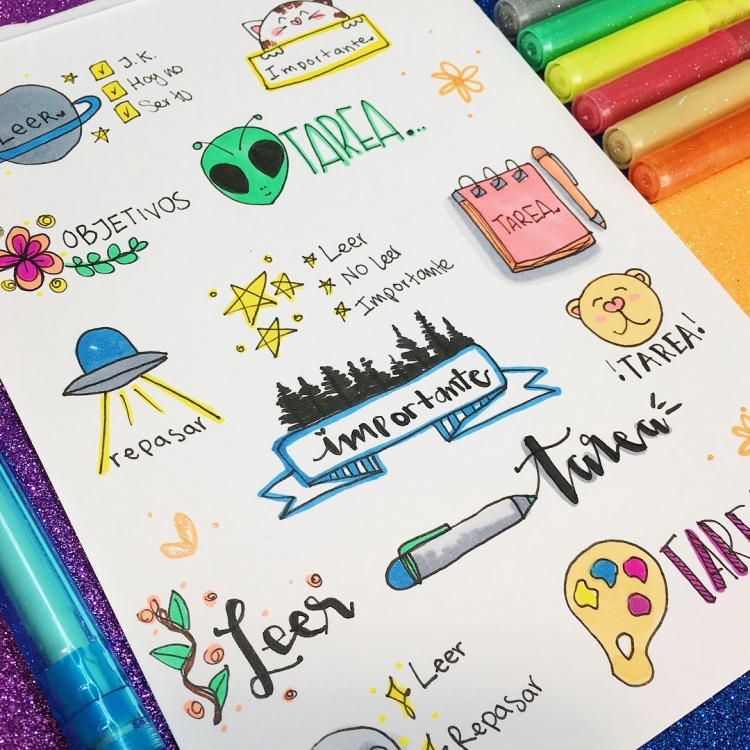 Importante
LEER
J.K.
Hoy no
Ser to
TAREA...
OBJETIVOS
TAREA
Leer
NO leer
Importante
¡TAREA!
repasar
importante
tarea
TARE
Leer
Leer
Repasar